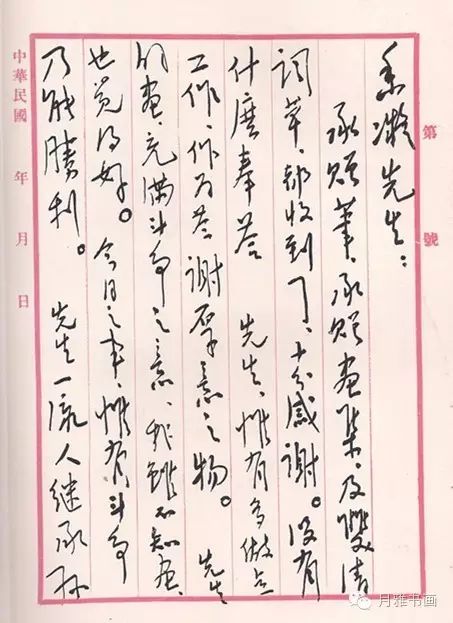 第 號
香凝先生：
承贈筆、承贈画集、及雙清
词草、都收到了、十分感谢。没有
什麽奉答 先生、惟有多做点
工作、作为荅谢厚意之物。 先生
的画、充满斗争之意、我虽不知画、
也觉得好。今日之事、惟有斗争
乃能勝利。 先生一流人继承孙
中華民國 年 月 日
月雅书画